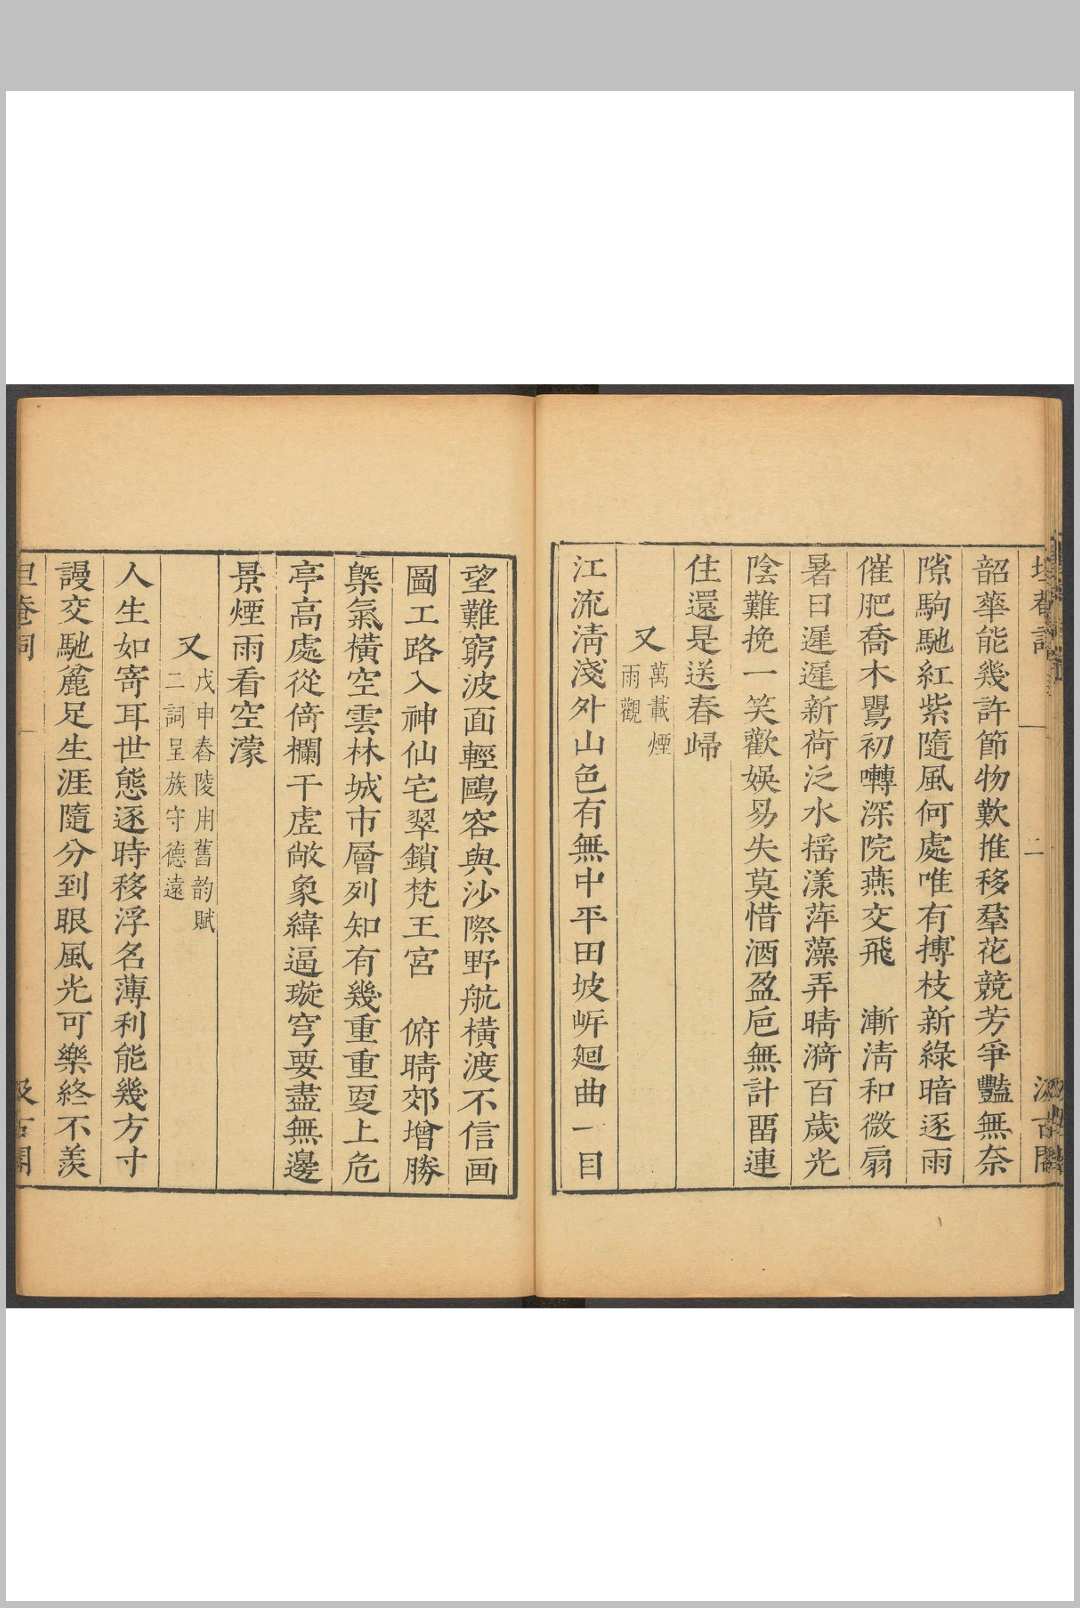 韶華能幾許節物歎推移羣花競芳爭豔無奈
隙駒馳紅紫隨風何處唯有摶枝新綠暗逐雨
催肥喬木鸎初囀深院燕交飛　漸淸和微扇
暑日遲遲新荷泛水搖漾萍藻弄晴漪百歲光
陰難挽一笑歡娛易失莫惜酒盈巵無計畱連
住還是送春歸
又　萬載煙
雨觀
江流淸淺外山色有無中平田坡岸廻曲一目
望難窮波面輕鷗容與沙際野航橫渡不信画
圖工路入神仙宅翠鎖梵王宮　俯晴郊增勝
槩氣橫空雲林城市層列知有幾重重更上危
亭高處從倚欄干虛敞象緯逼璇穹要盡無邊
景煙雨看空濛
又　戊申舂陵用舊韵賦
二詞呈族守德遠
人生如寄耳世態逐時移浮名薄利能幾方寸
謾交馳麄足生涯隨分到眼風光可樂終不羨